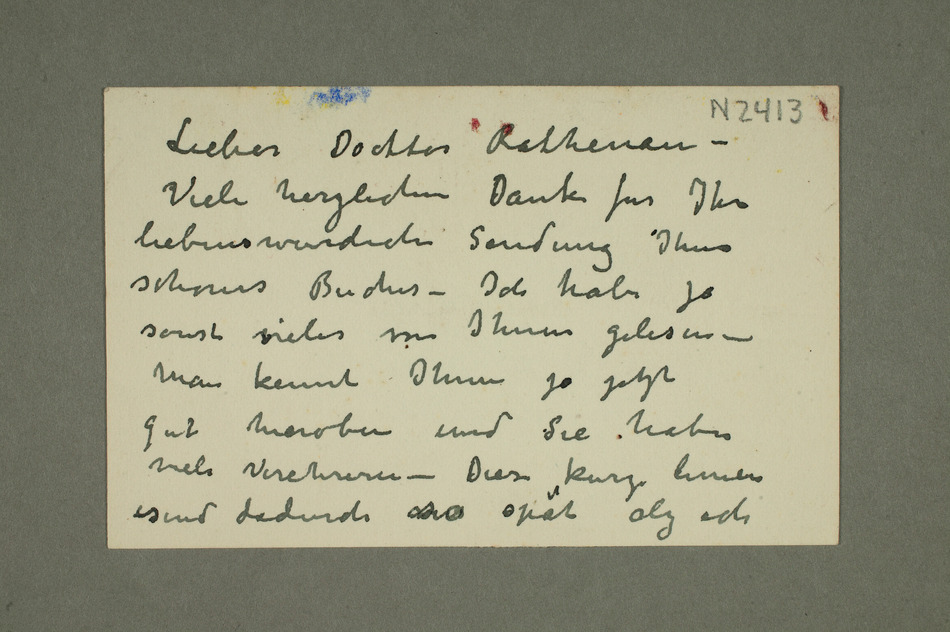 N2413
Lieber Docttor Rathenau –
Viele herzlichen Dank für Ihre
liebenswurdiche Sendung Ihres
schones Buches – Ich habe ja
sonst vieles von Ihnen gelesen –
man kennt Ihnen ja jetzt
gut hieroben und Sie haben
viele Verehrern – Diese kurze linien
sind dadurch so spät als ich